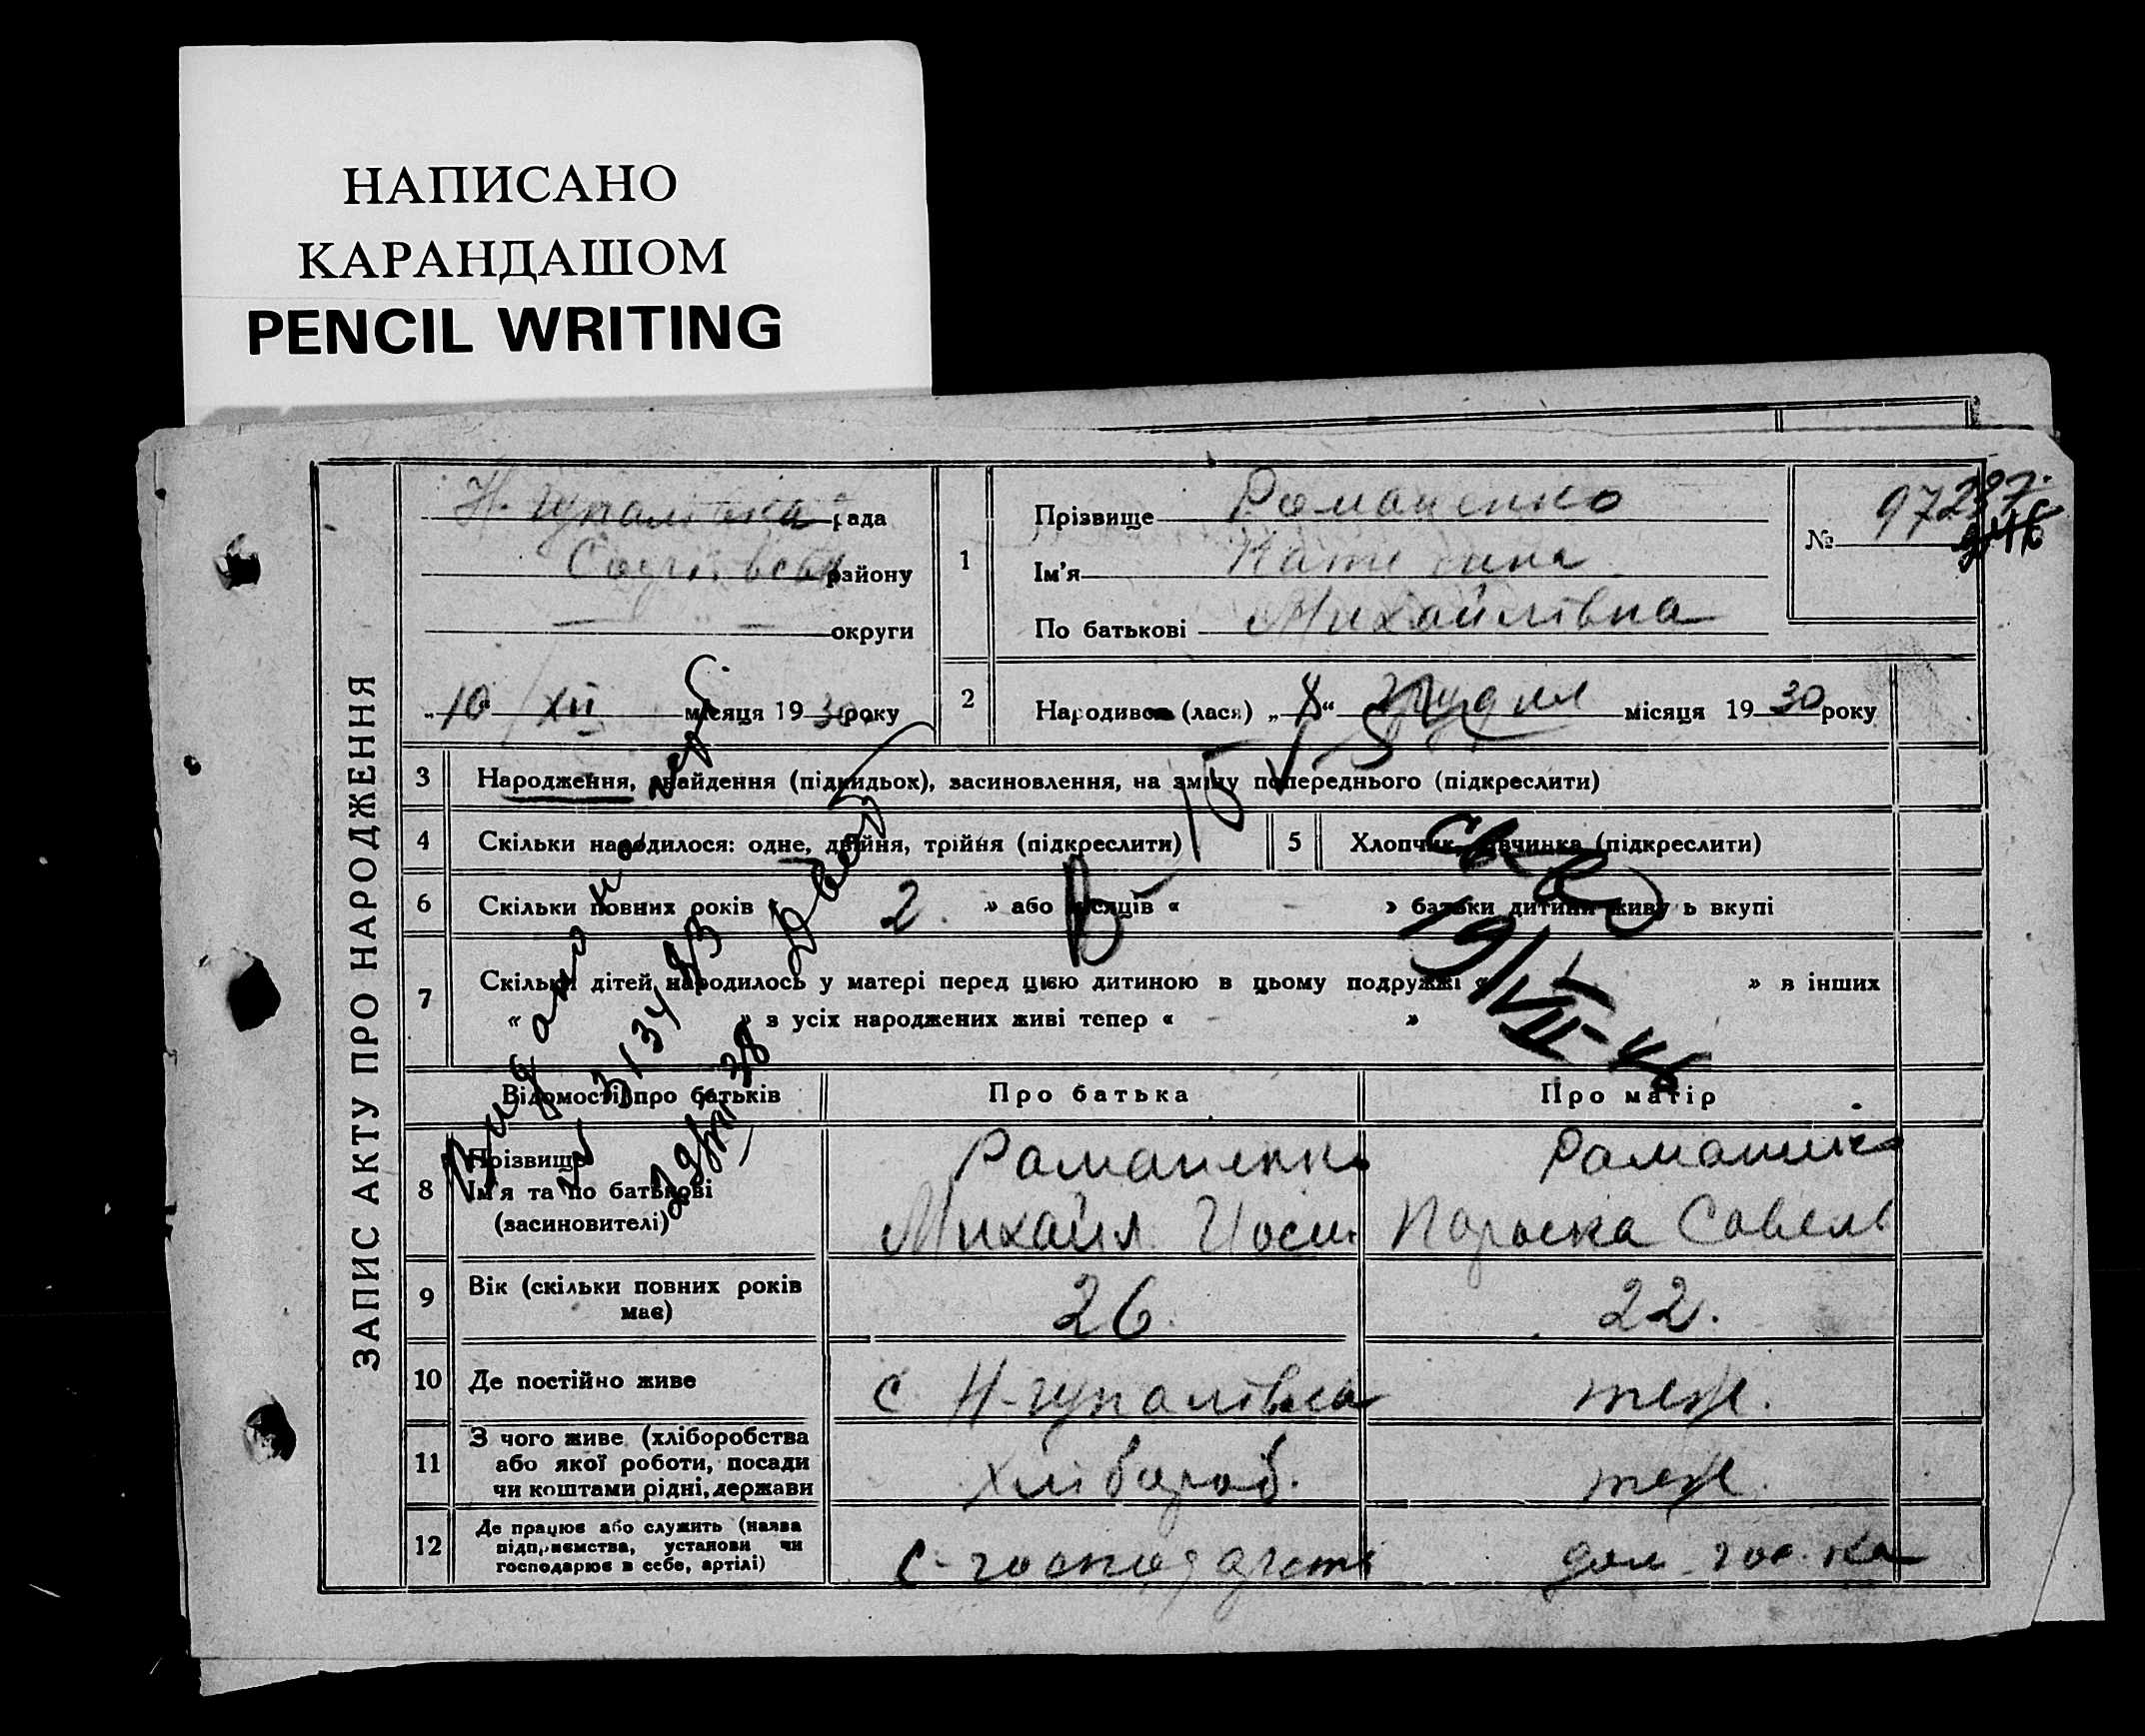 НАПИСАНО
КАРАНДАШОМ
PENCIL WRITING
ЗАПИС АКТУ ПРО НАРОДЖЕННЯ
рада
району
округи
„10“ XII місяця 1930 року
1
Прізвище Романенко
Ім'я Катерина
По батькові Михайлівна
№ 97
2
Народився (лася) „8“ Грудня місяця 1930 року
3 Народження, знайдення (підкидьох), засиновлення, на зміну попереднього (підкреслити)
4 Скільки народилося: одне, двійня, трійня (підкреслити)
5 Хлопчик, дівчинка (підкреслити)
6 Скільки повних років „ 2. » або місяців « » батьки дитини живуть вкупі
7 Скільки дітей народилось у матері перед цією дитиною в цьому подружжі « » в інших
« » з усіх народжених живі тепер « »
Св
19/VII-46
Відомості про батьків
Про батька
Про матір
8 Прізвище
Ім'я та по батькові
(засиновителі)
Романенко
Михайл Йосип
Романенко
Параска Савель
9 Вік (скільки повних років
має)
26
22.
10 Де постійно живе
с Н-гупалівка
теж.
11 З чого живе (хліборобства
або якої роботи, посади
чи коштами рідні, держави
хлібороб.
теж.
12 Де працює або служить (назва
підприємства, установи чи
господарює в себе, артілі)
с-господарстві
дом. гос-ка